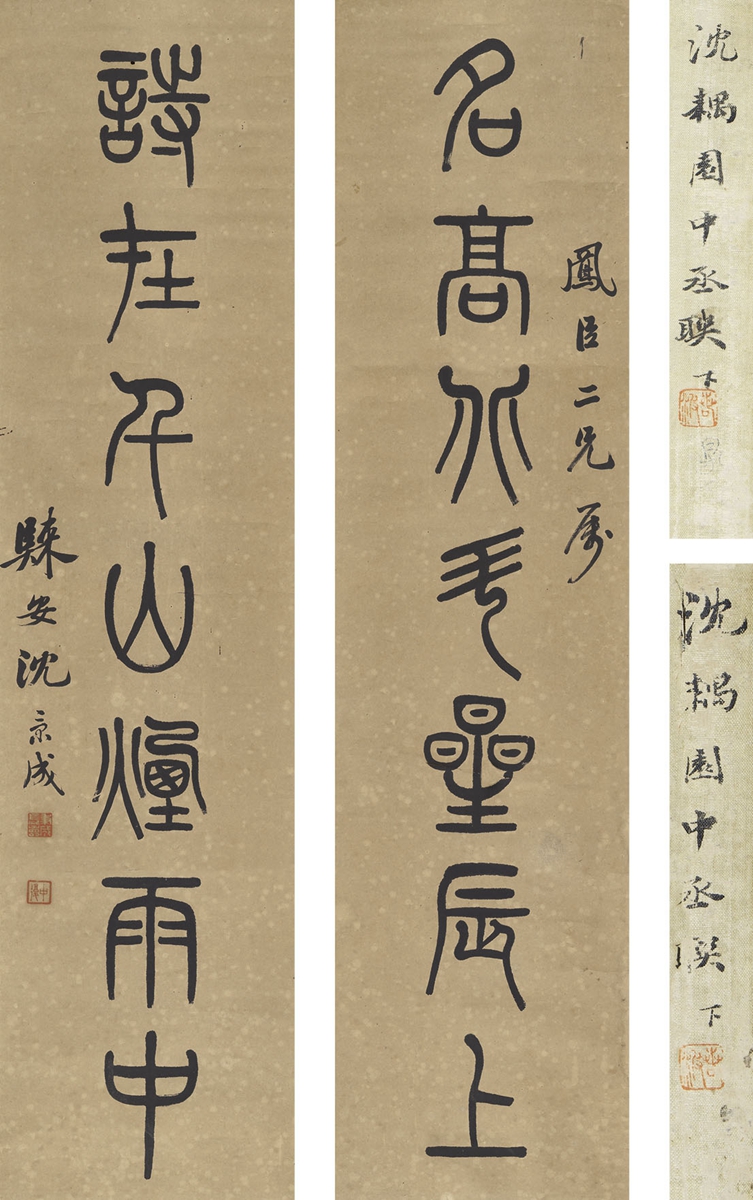 沈耦園中丞聯下
沈耦園中丞聯下
鳳臣二兄屬
名高北斗星辰上
詩在千山煙雨中
歸安沈秉成